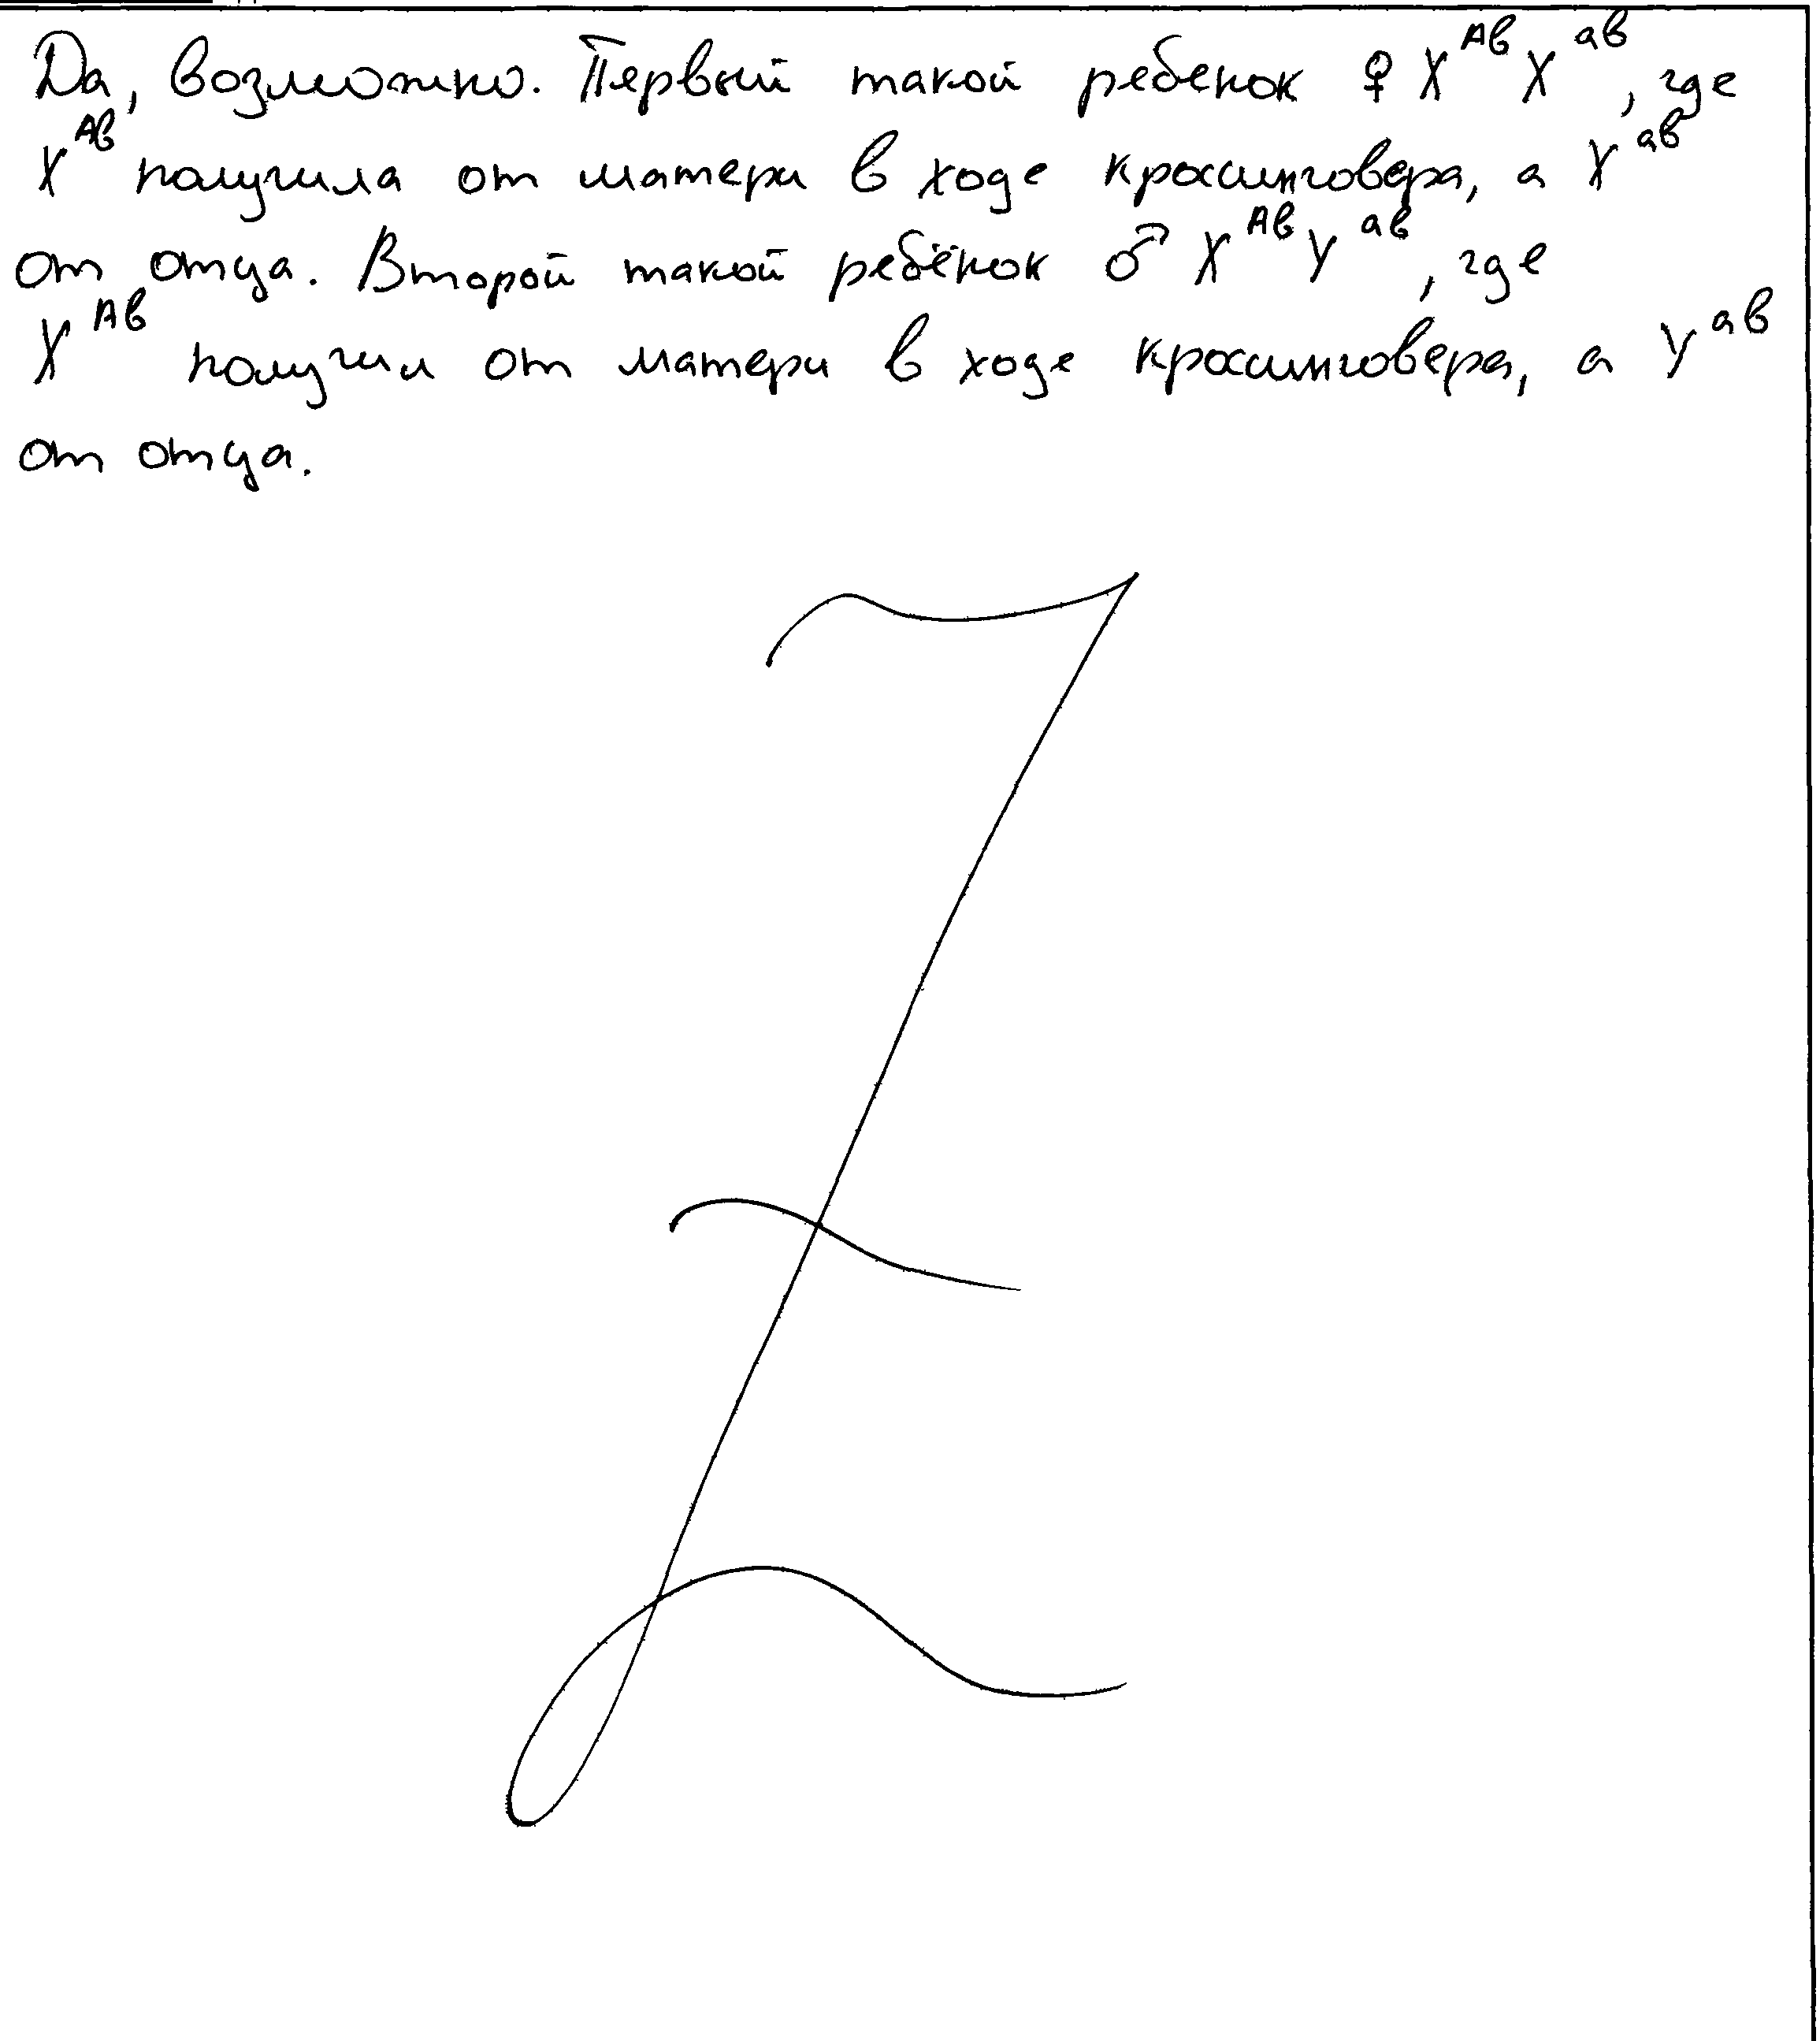 Да, возможно. Первый такой ребенок ♀ X^Ab X^ab, где
X^Ab получила от матери в ходе кроссинговера, а X^ab
от отца. Второй такой ребёнок ♂ X^Ab Y^ab, где
X^Ab получил от матери в ходе кроссинговера, а Y^ab
от отца.